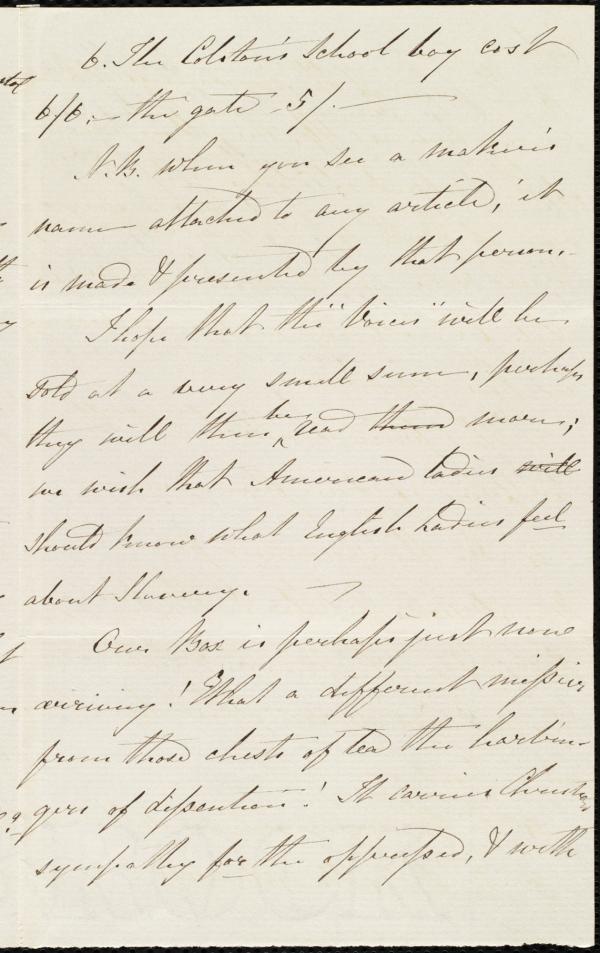 6. The Colston's School boy cost
6/6. — the gate 5/. —
N.B. when you see a maker's
name attached to any article, it
is made & presented by that person.
I hope that the "Voices" will be
sold at a very small sum, perhaps
they will then be read them more;
we wish that American ladies will
should know what English Ladies feel
about Slavery.
Our Box is perhaps just now
arriving! What a different mission
from those chests of tea the harbin-
gers of dissention! It carries Christian
sympathy for the oppressed, & with